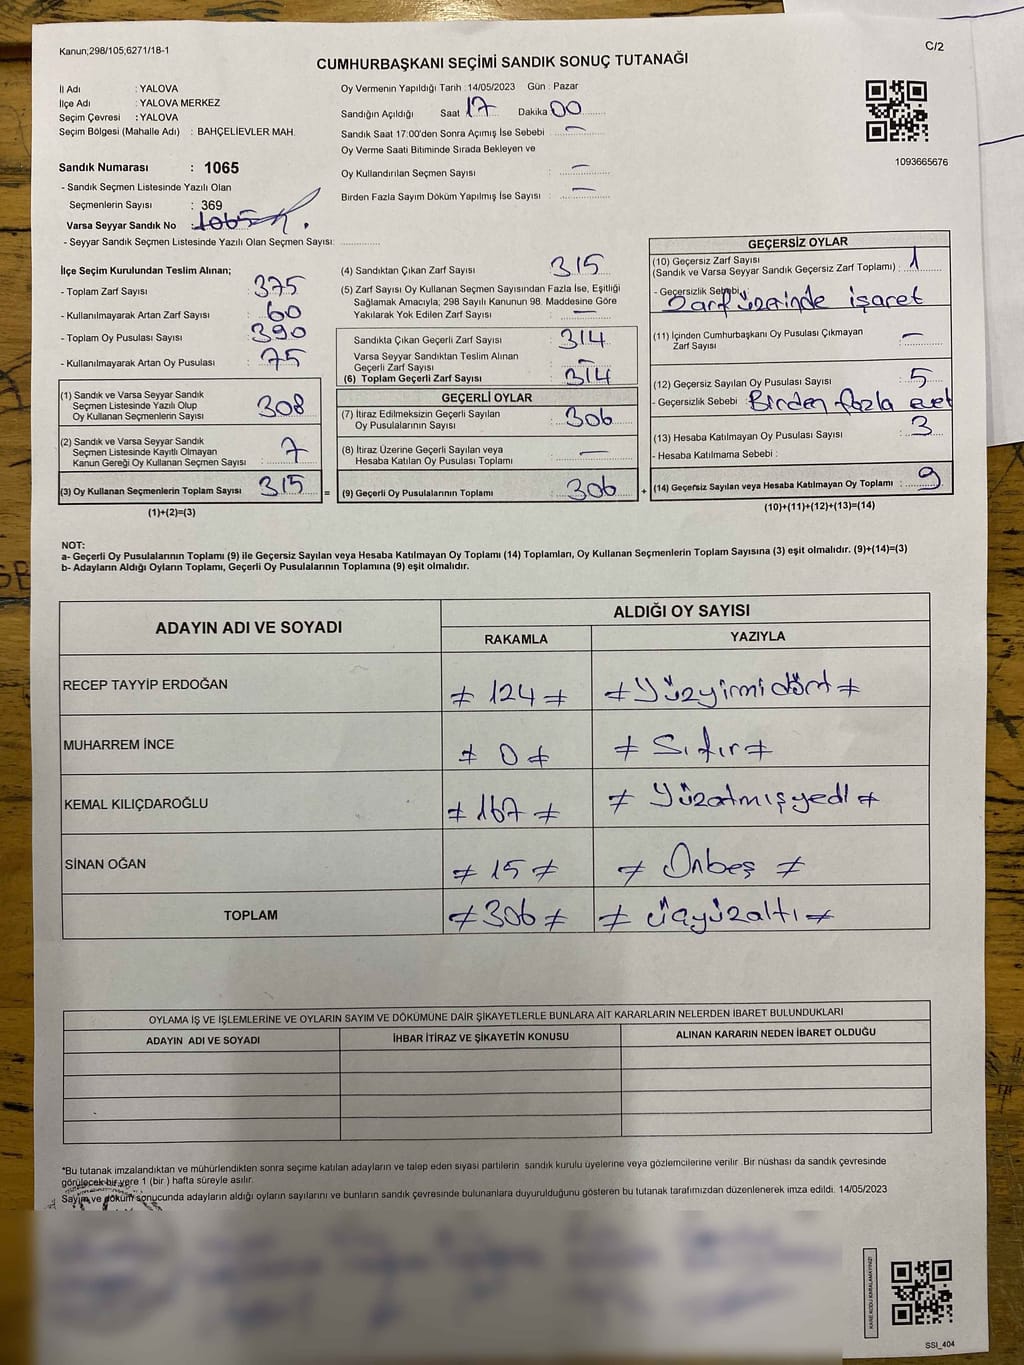 Kanun;298/105,6271/18-1
C/2
CUMHURBAŞKANI SEÇİMİ SANDIK SONUÇ TUTANAĞI
İl Adı : YALOVA
İlçe Adı : YALOVA MERKEZ
Seçim Çevresi : YALOVA
Seçim Bölgesi (Mahalle Adı) : BAHÇELİEVLER MAH.
Sandık Numarası : 1065
- Sandık Seçmen Listesinde Yazılı Olan
Seçmenlerin Sayısı : 369
Varsa Seyyar Sandık No : 1065
- Seyyar Sandık Seçmen Listesinde Yazılı Olan Seçmen Sayısı:
Oy Vermenin Yapıldığı Tarih : 14/05/2023 Gün : Pazar
Sandığın Açıldığı Saat 17 Dakika 00
Sandık Saat 17:00'den Sonra Açımış İse Sebebi : —
Oy Verme Saati Bitiminde Sırada Bekleyen ve
Oy Kullandırılan Seçmen Sayısı : —
Birden Fazla Sayım Döküm Yapılmış İse Sayısı : —
1093665676
İlçe Seçim Kurulundan Teslim Alınan;
- Toplam Zarf Sayısı : 375
- Kullanılmayarak Artan Zarf Sayısı : 60
- Toplam Oy Pusulası Sayısı : 390
- Kullanılmayarak Artan Oy Pusulası : 75
(1) Sandık ve Varsa Seyyar Sandık
Seçmen Listesinde Yazılı Olup
Oy Kullanan Seçmenlerin Sayısı : 308
(2) Sandık ve Varsa Seyyar Sandık
Seçmen Listesinde Kayıtlı Olmayan
Kanun Gereği Oy Kullanan Seçmen Sayısı : 7
(3) Oy Kullanan Seçmenlerin Toplam Sayısı : 315 =
(1)+(2)=(3)
(4) Sandıktan Çıkan Zarf Sayısı : 315
(5) Zarf Sayısı Oy Kullanan Seçmen Sayısından Fazla İse, Eşitliği
Sağlamak Amacıyla; 298 Sayılı Kanunun 98. Maddesine Göre
Yakılarak Yok Edilen Zarf Sayısı : —
Sandıkta Çıkan Geçerli Zarf Sayısı : 314
Varsa Seyyar Sandıktan Teslim Alınan
Geçerli Zarf Sayısı : —
(6) Toplam Geçerli Zarf Sayısı : 314
GEÇERLİ OYLAR
(7) İtiraz Edilmeksizin Geçerli Sayılan
Oy Pusulalarının Sayısı : 306
(8) İtiraz Üzerine Geçerli Sayılan veya
Hesaba Katılan Oy Pusulası Toplamı : —
(9) Geçerli Oy Pusulalarının Toplamı : 306 +
GEÇERSİZ OYLAR
(10) Geçersiz Zarf Sayısı
(Sandık ve Varsa Seyyar Sandık Geçersiz Zarf Toplamı) : 1
- Geçersizlik Sebebi : Zarf üzerinde işaret
(11) İçinden Cumhurbaşkanı Oy Pusulası Çıkmayan
Zarf Sayısı : —
(12) Geçersiz Sayılan Oy Pusulası Sayısı : 5
- Geçersizlik Sebebi : Birden fazla evet
(13) Hesaba Katılmayan Oy Pusulası Sayısı : 3
- Hesaba Katılmama Sebebi :
(14) Geçersiz Sayılan veya Hesaba Katılmayan Oy Toplamı : 9
(10)+(11)+(12)+(13)=(14)
NOT:
a- Geçerli Oy Pusulalarının Toplamı (9) ile Geçersiz Sayılan veya Hesaba Katılmayan Oy Toplamı (14) Toplamları, Oy Kullanan Seçmenlerin Toplam Sayısına (3) eşit olmalıdır. (9)+(14)=(3)
b- Adayların Aldığı Oyların Toplamı, Geçerli Oy Pusulalarının Toplamına (9) eşit olmalıdır.
ADAYIN ADI VE SOYADI ALDIĞI OY SAYISI
RAKAMLA YAZIYLA
RECEP TAYYİP ERDOĞAN ≠ 124 ≠ ≠ Yüzyirmidört ≠
MUHARREM İNCE ≠ 0 ≠ ≠ Sıfır ≠
KEMAL KILIÇDAROĞLU ≠ 167 ≠ ≠ Yüzatmışyedi ≠
SİNAN OĞAN ≠ 15 ≠ ≠ Onbeş ≠
TOPLAM ≠ 306 ≠ ≠ üçyüzaltı ≠
OYLAMA İŞ VE İŞLEMLERİNE VE OYLARIN SAYIM VE DÖKÜMÜNE DAİR ŞİKAYETLERLE BUNLARA AİT KARARLARIN NELERDEN İBARET BULUNDUKLARI
ADAYIN ADI VE SOYADI İHBAR İTİRAZ VE ŞİKAYETİN KONUSU ALINAN KARARIN NEDEN İBARET OLDUĞU
*Bu tutanak imzalandıktan ve mühürlendikten sonra seçime katılan adayların ve talep eden siyasi partilerin sandık kurulu üyelerine veya gözlemcilerine verilir .Bir nüshası da sandık çevresinde
görülecek bir yere 1 (bir ) hafta süreyle asılır.
Sayım ve döküm sonucunda adayların aldığı oyların sayılarını ve bunların sandık çevresinde bulunanlara duyurulduğunu gösteren bu tutanak tarafımızdan düzenlenerek imza edildi. 14/05/2023
KARE KODU KARALAMAYINIZ!
SSI_404